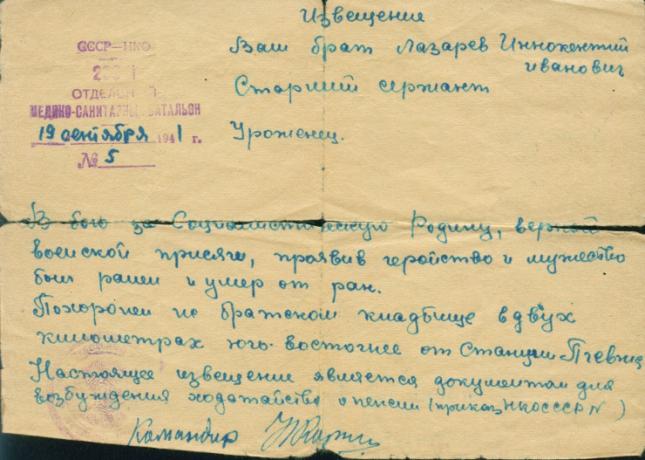 Извещение
СССР-НКО
Ваш брат Лазарев Иннокентий
Иванович
ОТДЕЛЬНЫЙ
Старший сержант
МЕДИКО-САНИТАРНЫЙ БАТАЛЬОН
19 сентября 1941 г.
Уроженец.
№ 5
В бою за Социалистическую Родину, верной
воиской присяги, проявив геройство и мужество
был ранен и умер от ран.
Похоронен на братском кладбище в двух
километрах юго-восточнее от станции
Настоящее извещение является документом для
возбуждения ходатайства о пенсии (приказ НКО СССР N )
Командир